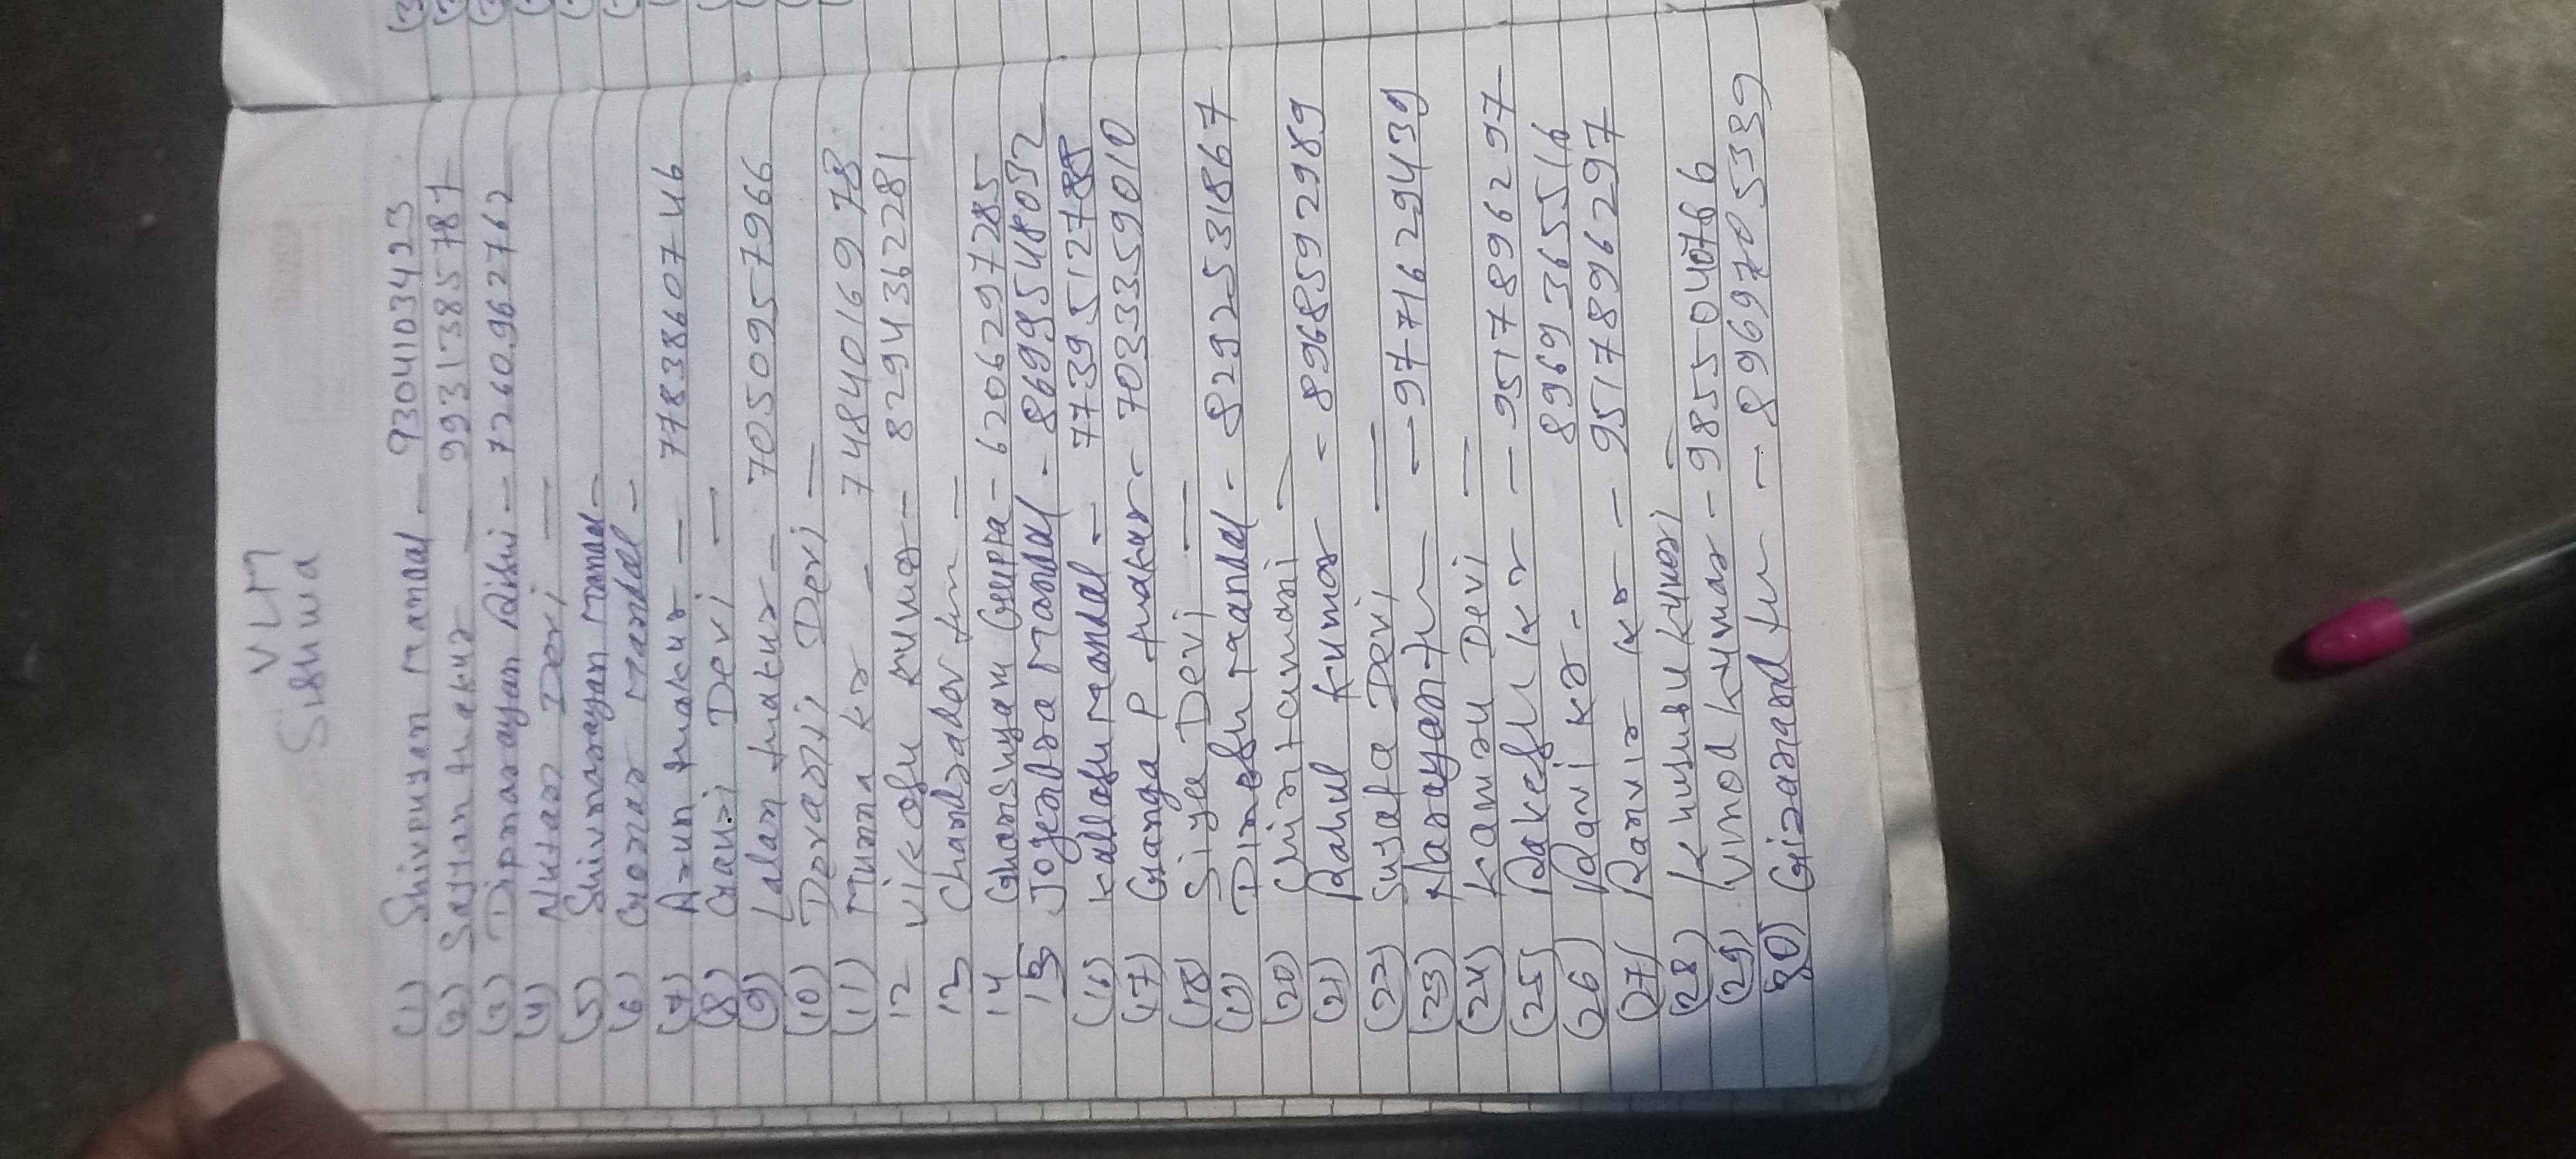 VLM
Sishwa
(1) Shivpujan Mandal - 9304103423
(2) Sajjan thakur - 9931385781
(3) Dipnarayan Rishi - 7260962762
(4) Nutan Devi =
(5) Shivnarayan Mandal =
(6) Genar Mandal -
(7) Arun thakur - 7783860746
(8) Gauri Devi =
(9) Lalan thakur - 7050957966
(10) Devanti Devi -
(11) Munna kr - 7484016978
12 Vikash kumar - 8294362281
13 Chandradev fm =
14 Ghanshyam Gupta - 6206297285
15 Jogendra Mandal - 8699548032
(16) Kallashu Mandal - 7739512788
(17) Ganga P thakur - 7033359010
(18) Siya Devi -
(19) Dinesh Mandal - 8292531867
(20) Chintamani -
(21) Rahul kumar - 8968592989
(22) Sujata Devi =
(23) Narayan fm - 9771629439
(24) Kamru Devi -
(25) Rakesh kr - 9517896297
(26) Ravi kr - 8969365516
(27) Ranvir kr - 9517896297
(28) Khushbu kumari -
(29) Vinod kumar - 9855040766
30) Girianand fm - 8969705339